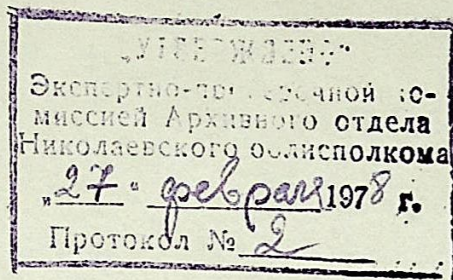 „УТВЕРЖДЕНО"
Экспертно-проверочной ко-
миссией Архивного отдела
Николаевского облисполкома
„27" февраля 1978 г.
Протокол № 2